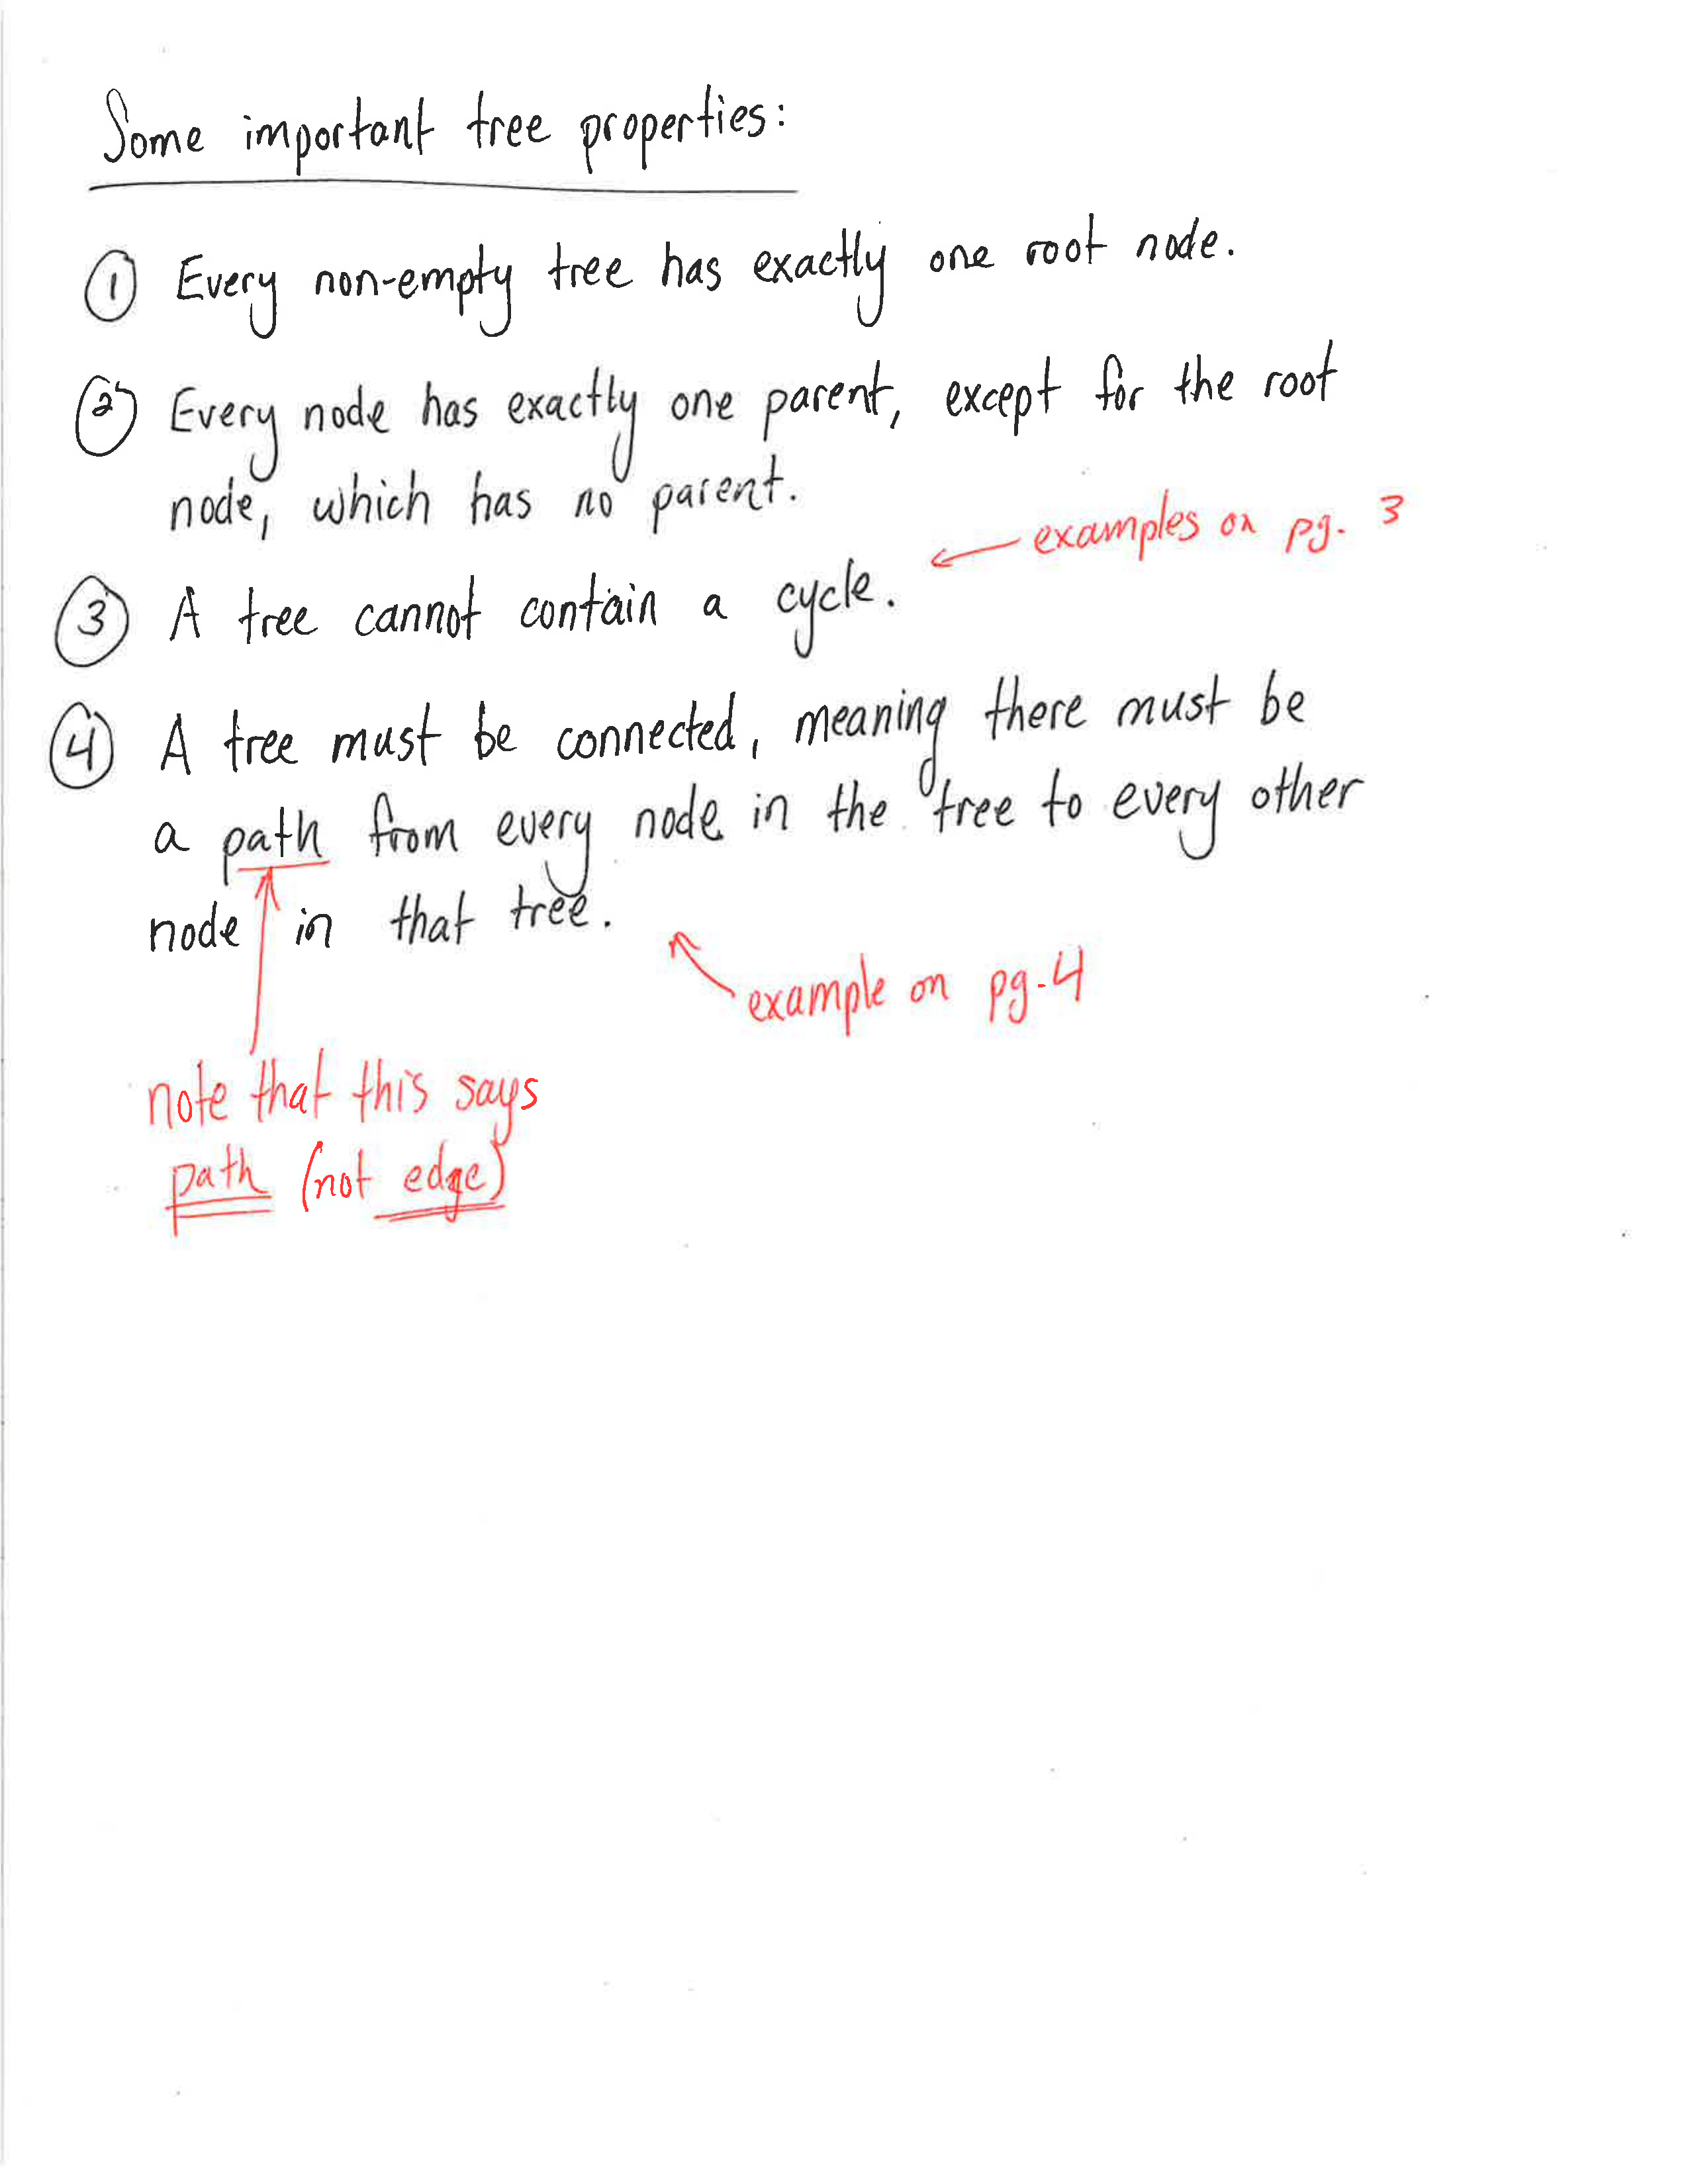 Some important tree properties:
① Every non-empty tree has exactly one root node.
② Every node has exactly one parent, except for the root
node, which has no parent.
← examples on pg. 3
③ A tree cannot contain a cycle.
④ A tree must be connected, meaning there must be
a path from every node in the tree to every other
node in that tree.
example on pg. 4
note that this says
path (not edge)